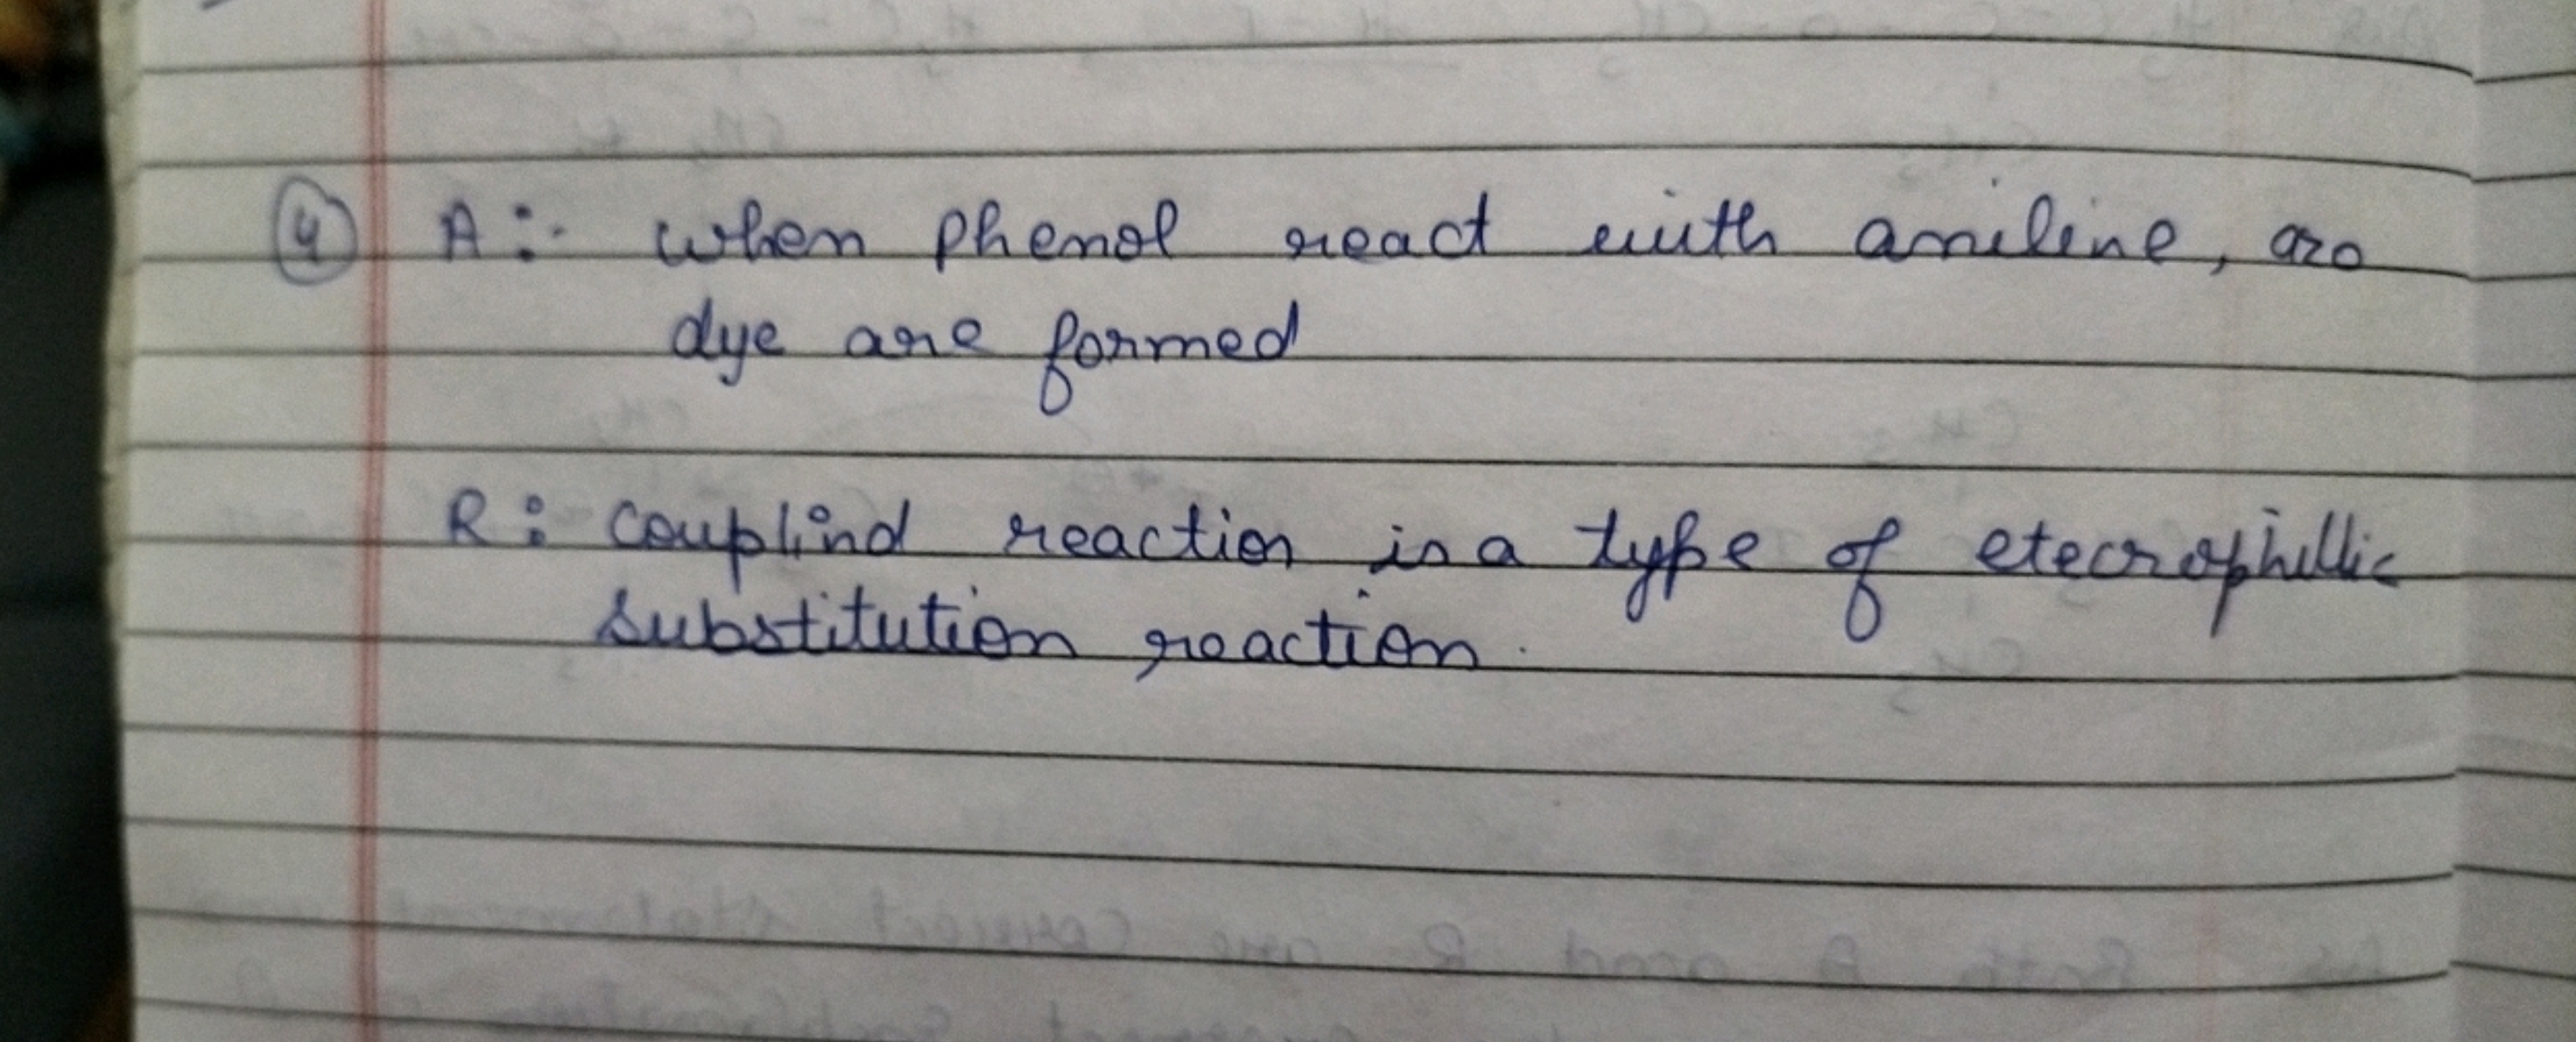 4 A :- when phenol react with aniline, azo
dye are formed
R : couplind reaction is a type of etecrophillic
substitution reaction.